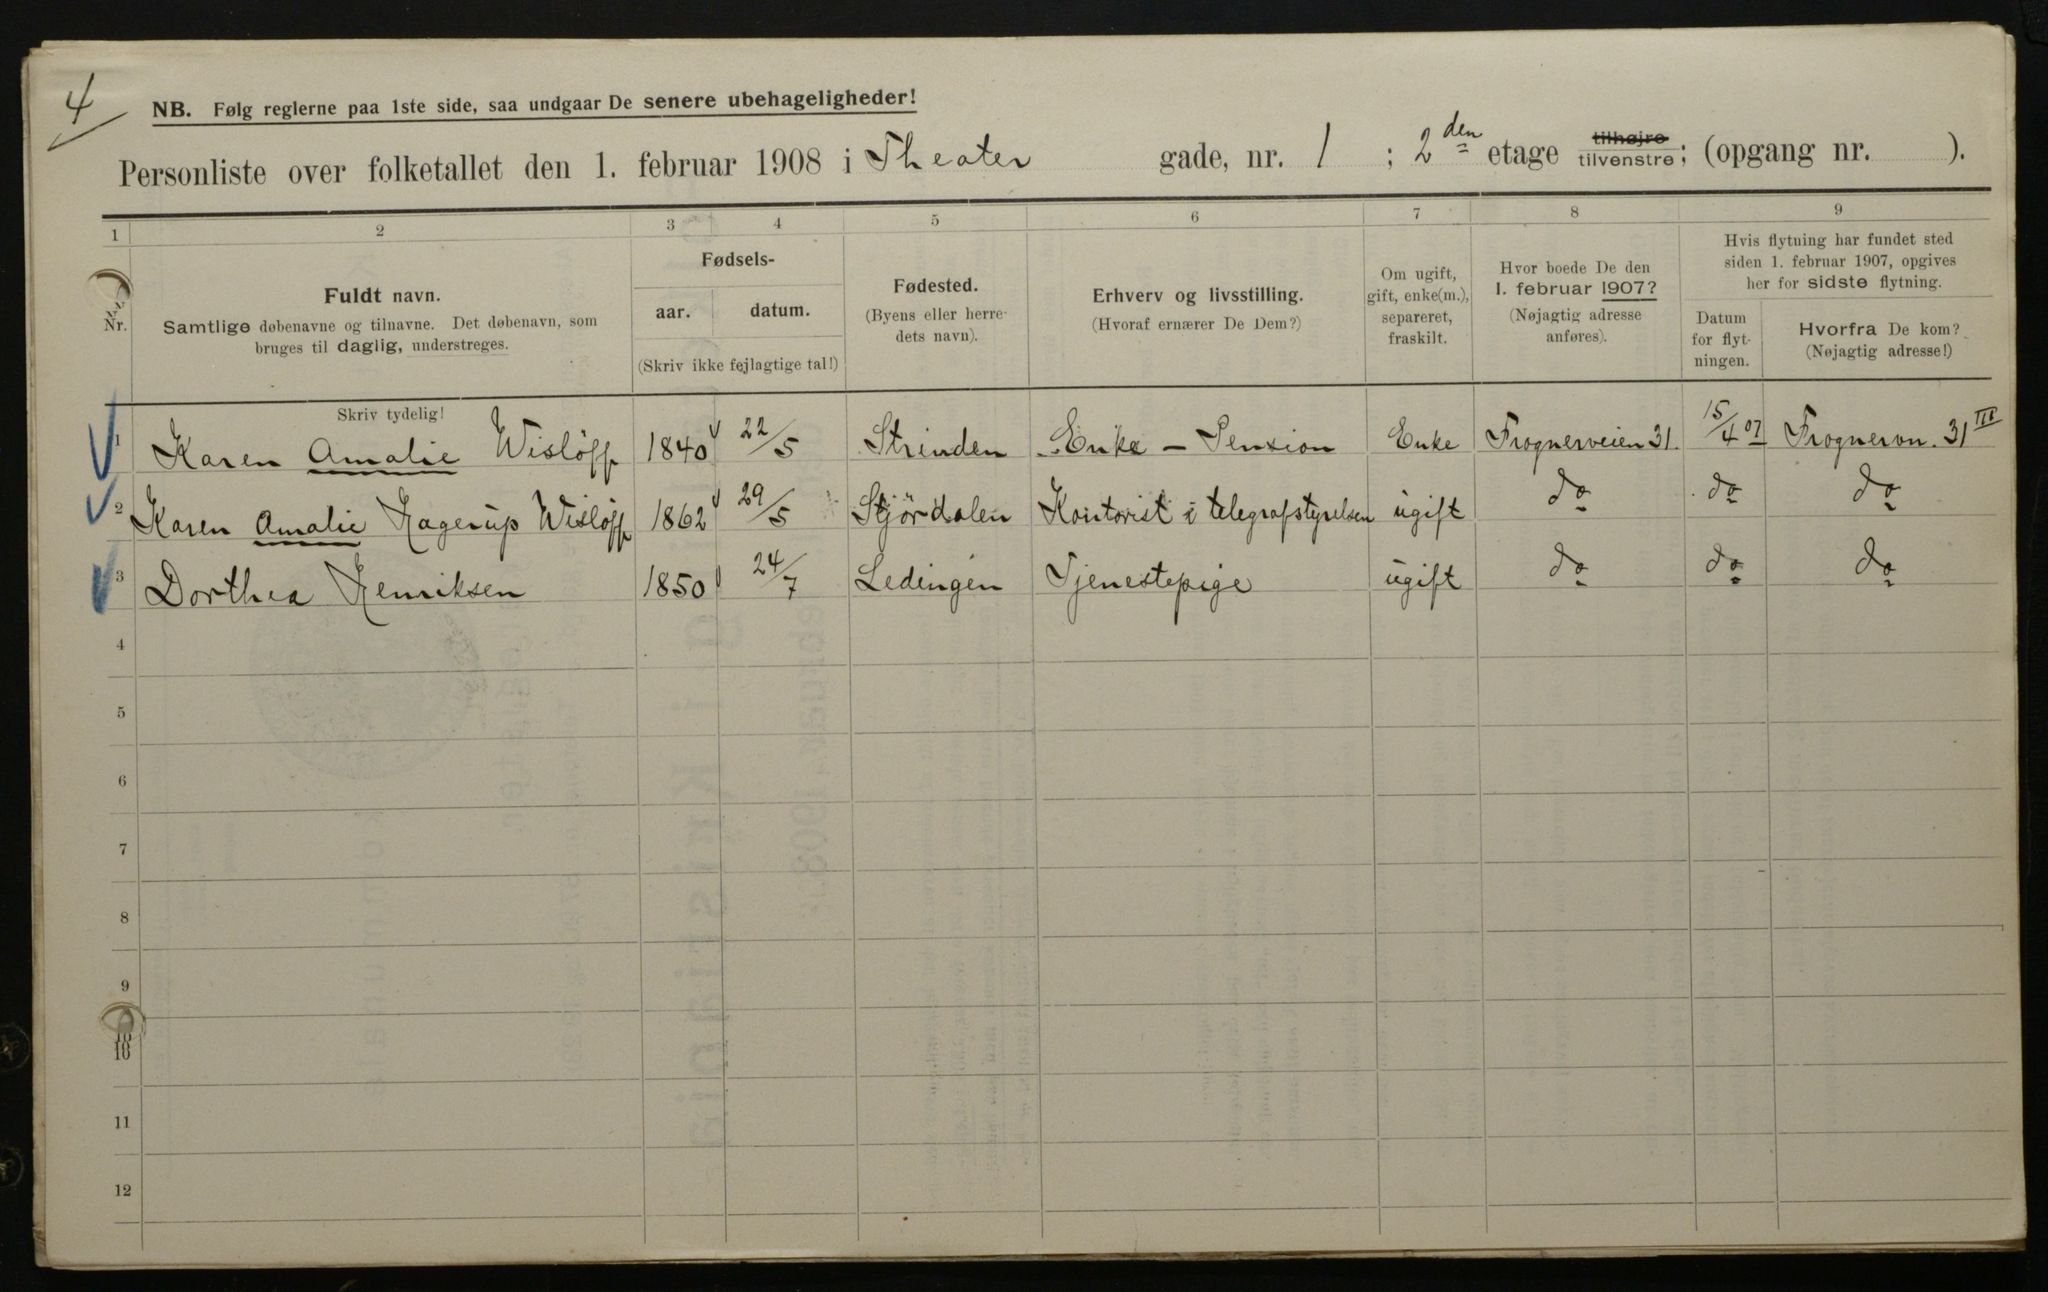 4
NB. Følg reglerne paa 1ste side, saa undgaar De senere ubehageligheder!
Personliste over folketallet den 1. februar 1908 i Theater gade, nr. 1 ; 2den etage tilhøjre tilvenstre; (opgang nr. ).
1 2 3 4 5 6 7 8 9
Nr. Fuldt navn. Samtlige døbenavne og tilnavne. Det døbenavn, som bruges til daglig, understreges.
Fødsels- aar. datum. (Skriv ikke fejlagtige tal!)
Fødested. (Byens eller herredets navn).
Erhverv og livsstilling. (Hvoraf ernærer De Dem?)
Om ugift, gift, enke(m.), separeret, fraskilt.
Hvor boede De den 1. februar 1907? (Nøjagtig adresse anføres).
Hvis flytning har fundet sted siden 1. februar 1907, opgives her for sidste flytning.
Datum for flytningen. Hvorfra De kom? (Nøjagtig adresse!)
Skriv tydelig!
1 Karen Amalie Wisløff 1840 22/5 Strinden Enke - Pension Enke Frognerveien 31. 15/4 07 Frognervn. 31 III
2 Karen Amalie Hagerup Wisløff 1862 29/5 Stjördalen Kontorist i telegrafstyrelsen ugift do do do
3 Dorthea Henriksen 1850 24/7 Ledingen Tjenestepige ugift do do do
4
5
6
7
8
9
10
10
11
12